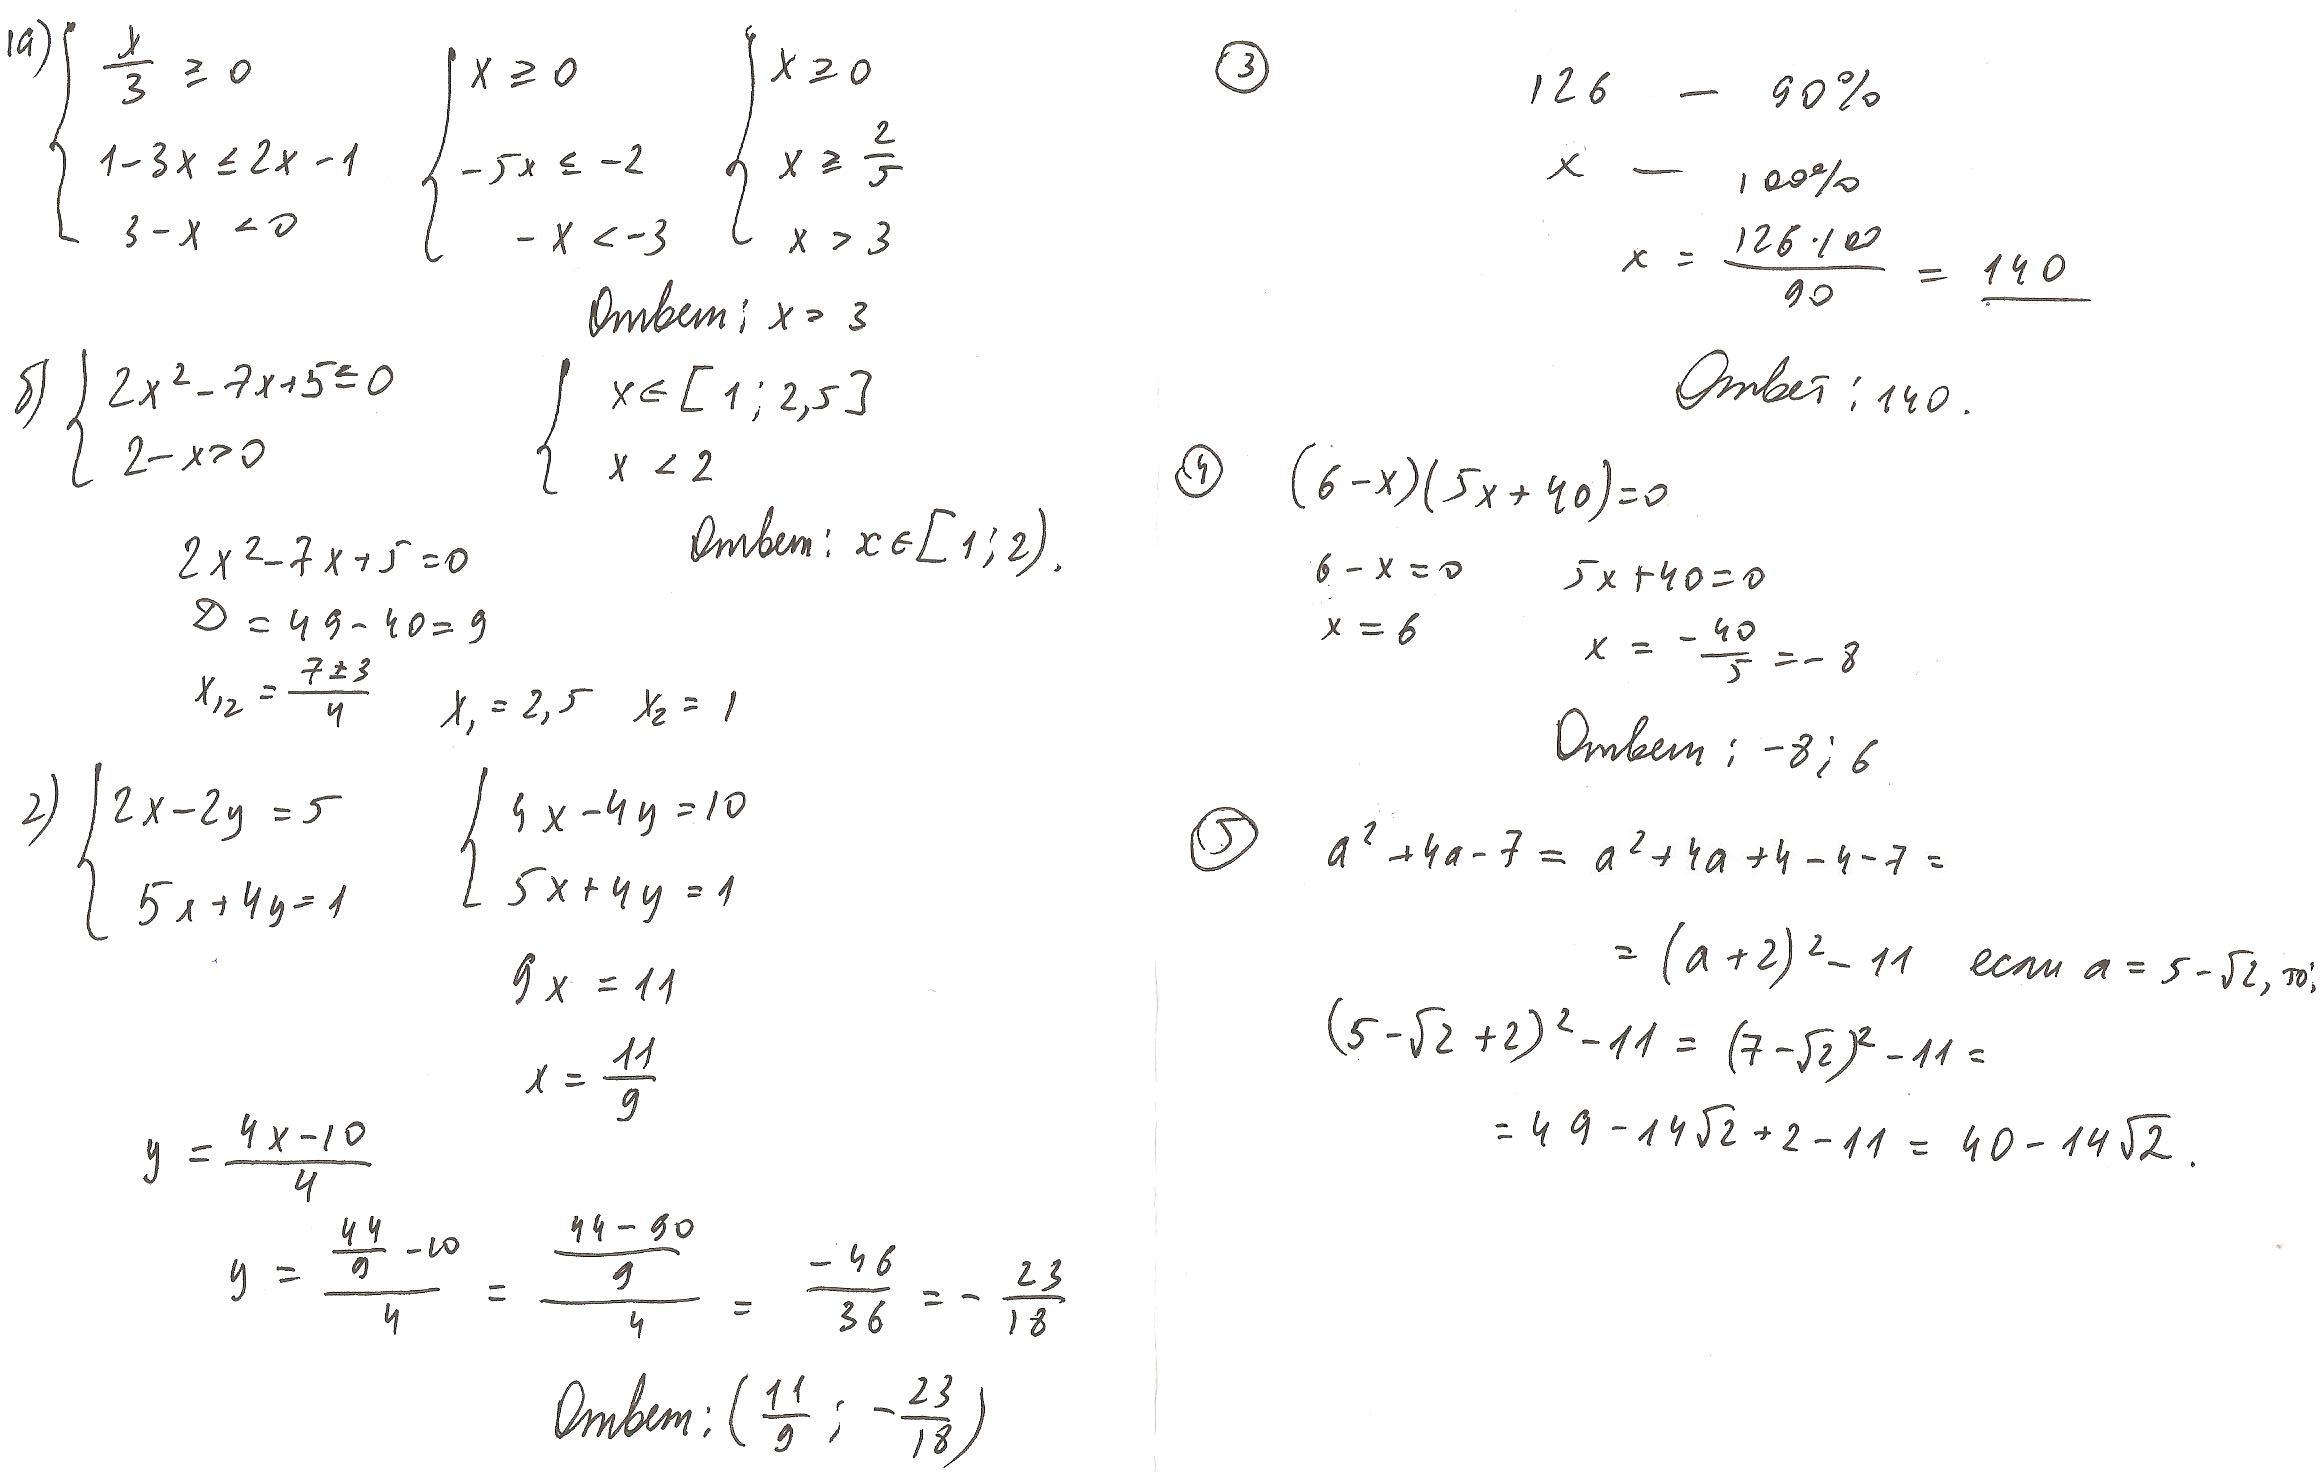 1а) { x/3 ≥ 0 { x ≥ 0 { x ≥ 0
1-3x ≤ 2x-1 -5x ≤ -2 x ≥ 2/5
3-x < 0 -x < -3 x > 3
Ответ: x > 3
б) { 2x²-7x+5≤0 { x∈[1; 2,5]
2-x>0 x < 2
Ответ: x∈[1; 2).
2x²-7x+5=0
D = 49-40=9
x₁,₂ = (7±3)/4 x₁ = 2,5 x₂ = 1
2) { 2x-2y = 5 { 4x-4y=10
5x+4y=1 5x+4y=1
9x = 11
x = 11/9
y = (4x-10)/4
y = (44/9 -10)/4 = ((44-90)/9)/4 = -46/36 = - 23/18
Ответ: (11/9; -23/18)
③
126 — 90%
x — 100%
x = (126·100)/90 = 140
Ответ: 140.
④ (6-x)(5x+40)=0
6-x=0 5x+40=0
x=6 x = -40/5 = -8
Ответ: -8; 6
⑤ a²+4a-7 = a²+4a+4-4-7=
= (a+2)²-11 если a = 5-√2, то:
(5-√2+2)²-11 = (7-√2)²-11=
= 49-14√2+2-11 = 40-14√2.